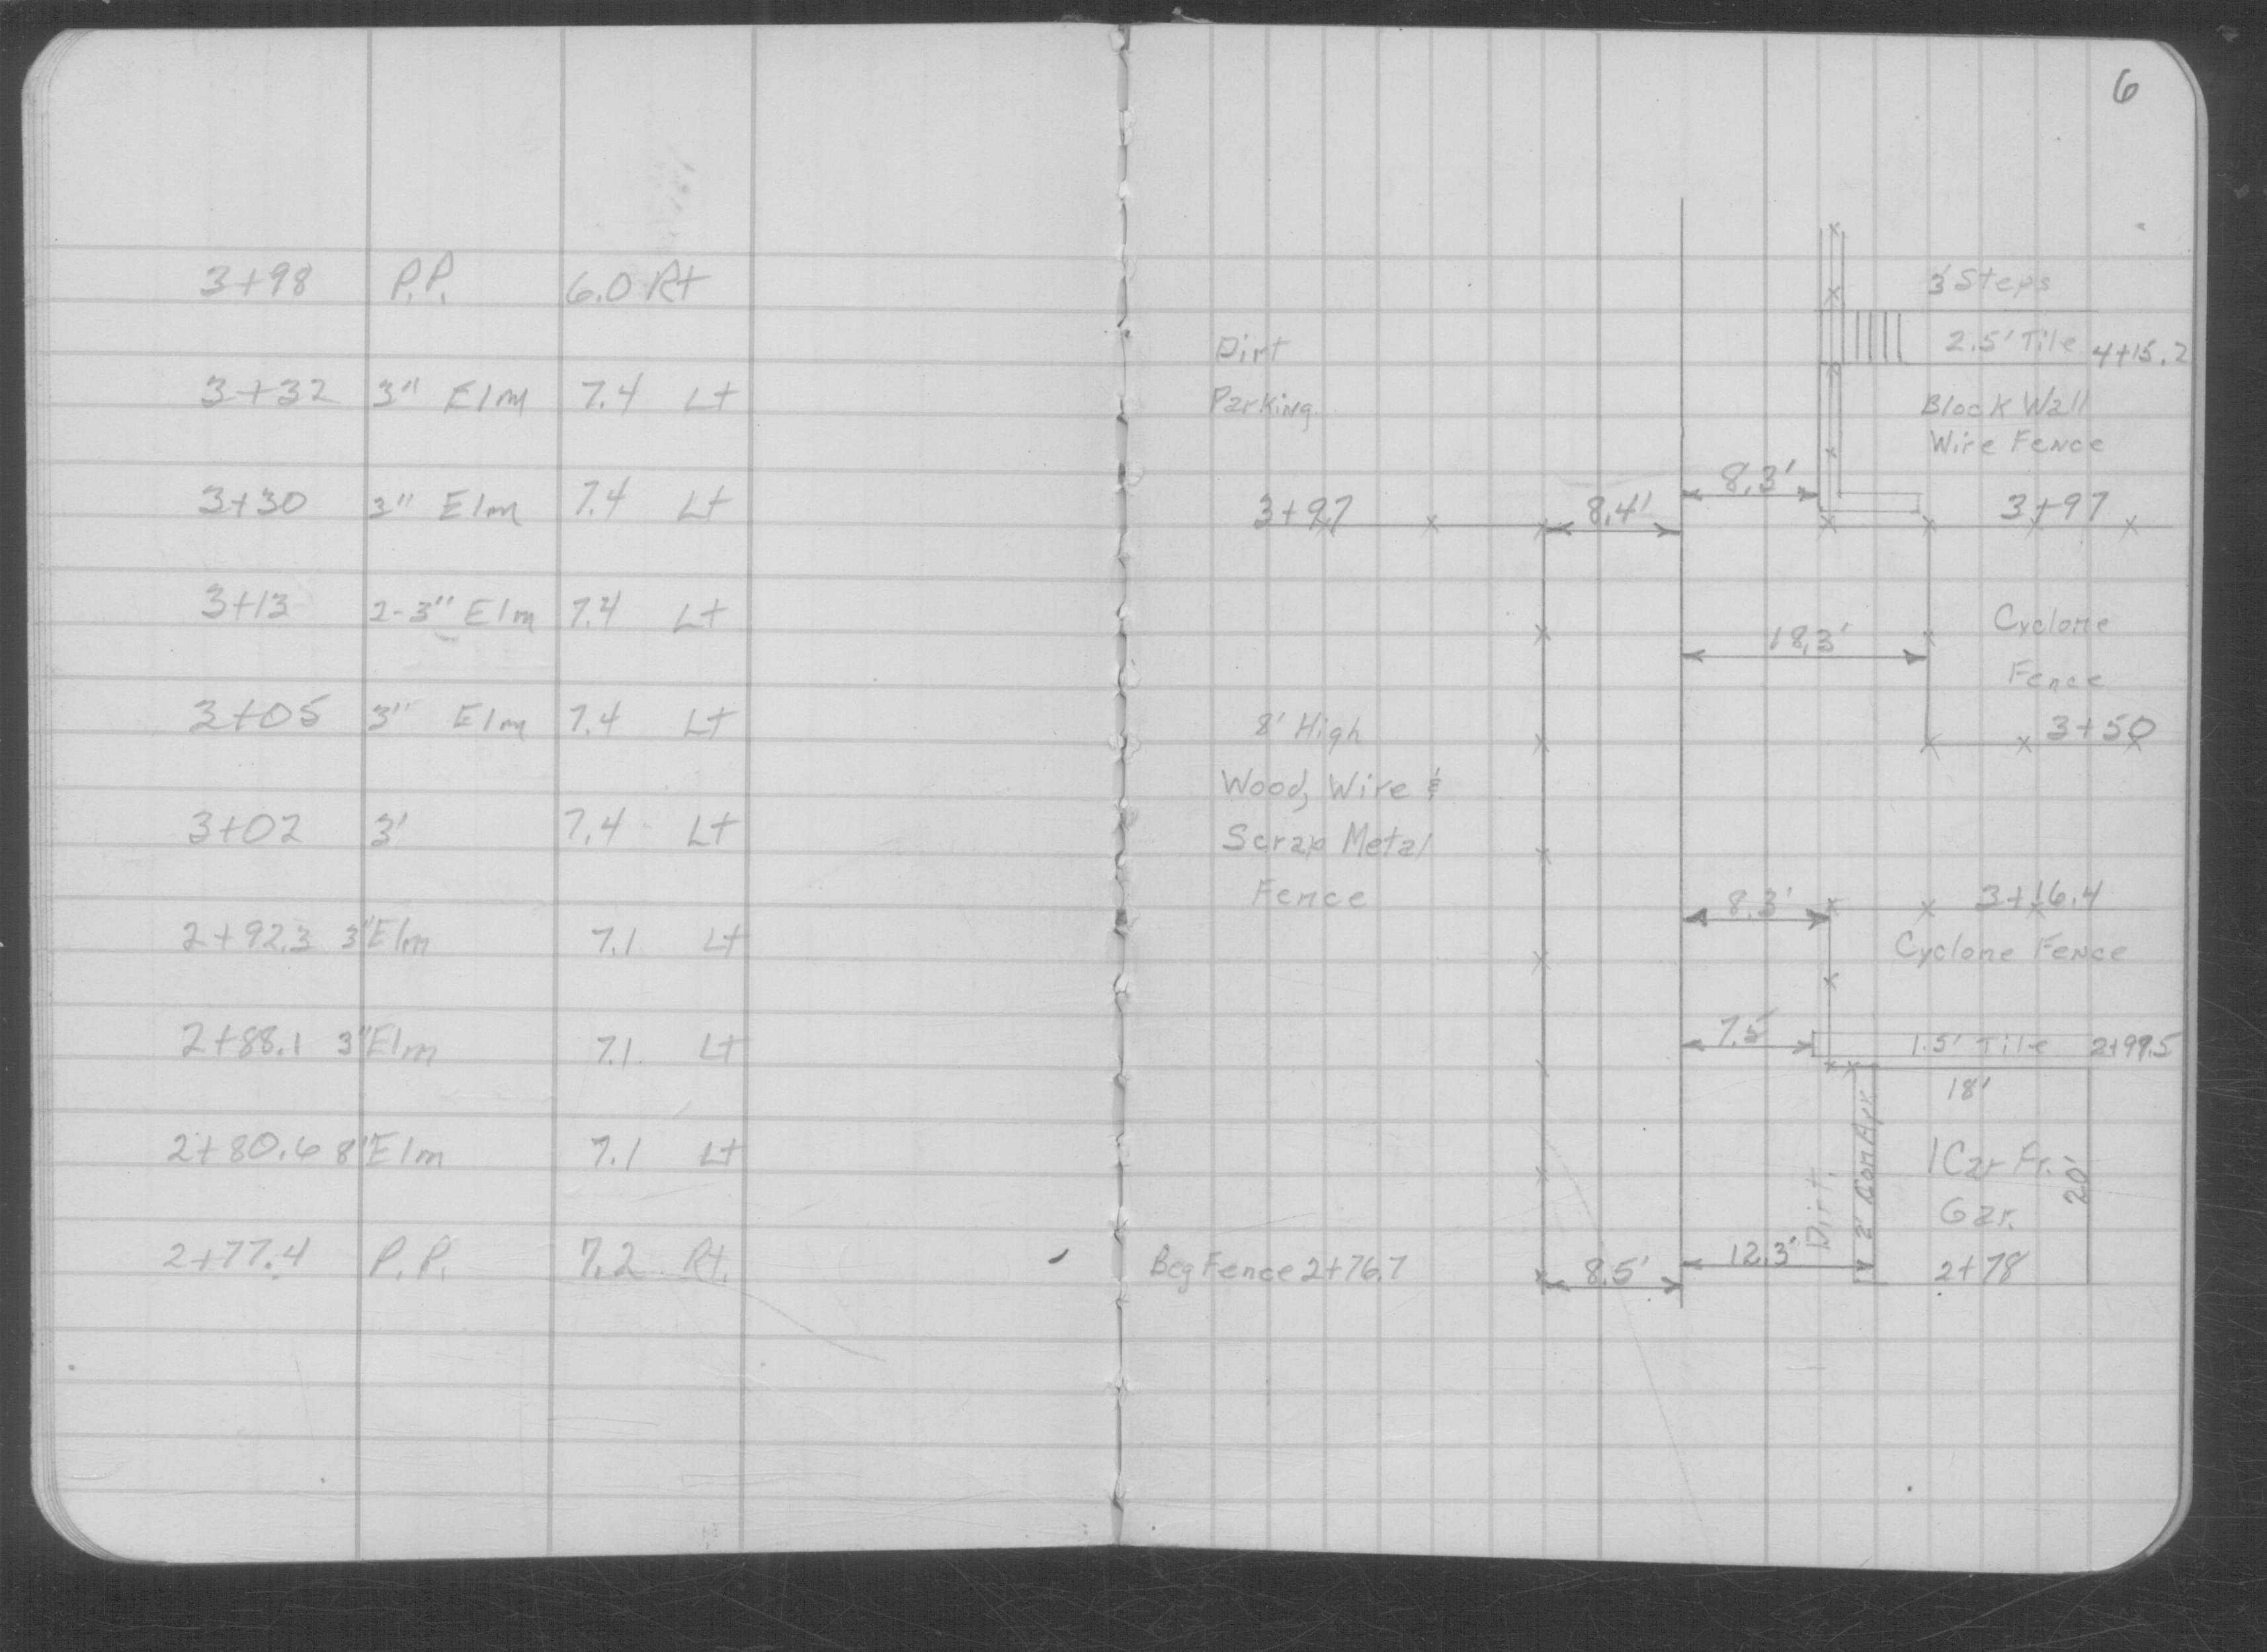 3+98 P.P. 6.0 Rt
3+32 3" Elm 7.4 Lt
3+30 3" Elm 7.4 Lt
3+13 2-3" Elm 7.4 Lt
3+05 3" Elm 7.4 Lt
3+02 3' 7.4 Lt
2+92.3 3" Elm 7.1 Lt
2+88.1 3" Elm 7.1 Lt
2+80.6 8" Elm 7.1 Lt
2+77.4 P.P. 7.2 Rt.
6
3 Steps
Dirt 2.5' Tile 4+15.2
Parking. Block Wall
Wire Fence
8.3'
3+97 8.4' 3+97
18.3' Cyclone
Fence
8' High 3+50
Wood, Wire &
Scrap Metal
Fence 8.3' 3+16.4
Cyclone Fence
7.5' 1.5' Tile 2+99.5
18'
Dirt. 2' Con Apr.
1 Car Fr. 20'
Gar.
Beg Fence 2+76.7 8.5' 12.3' 2+78